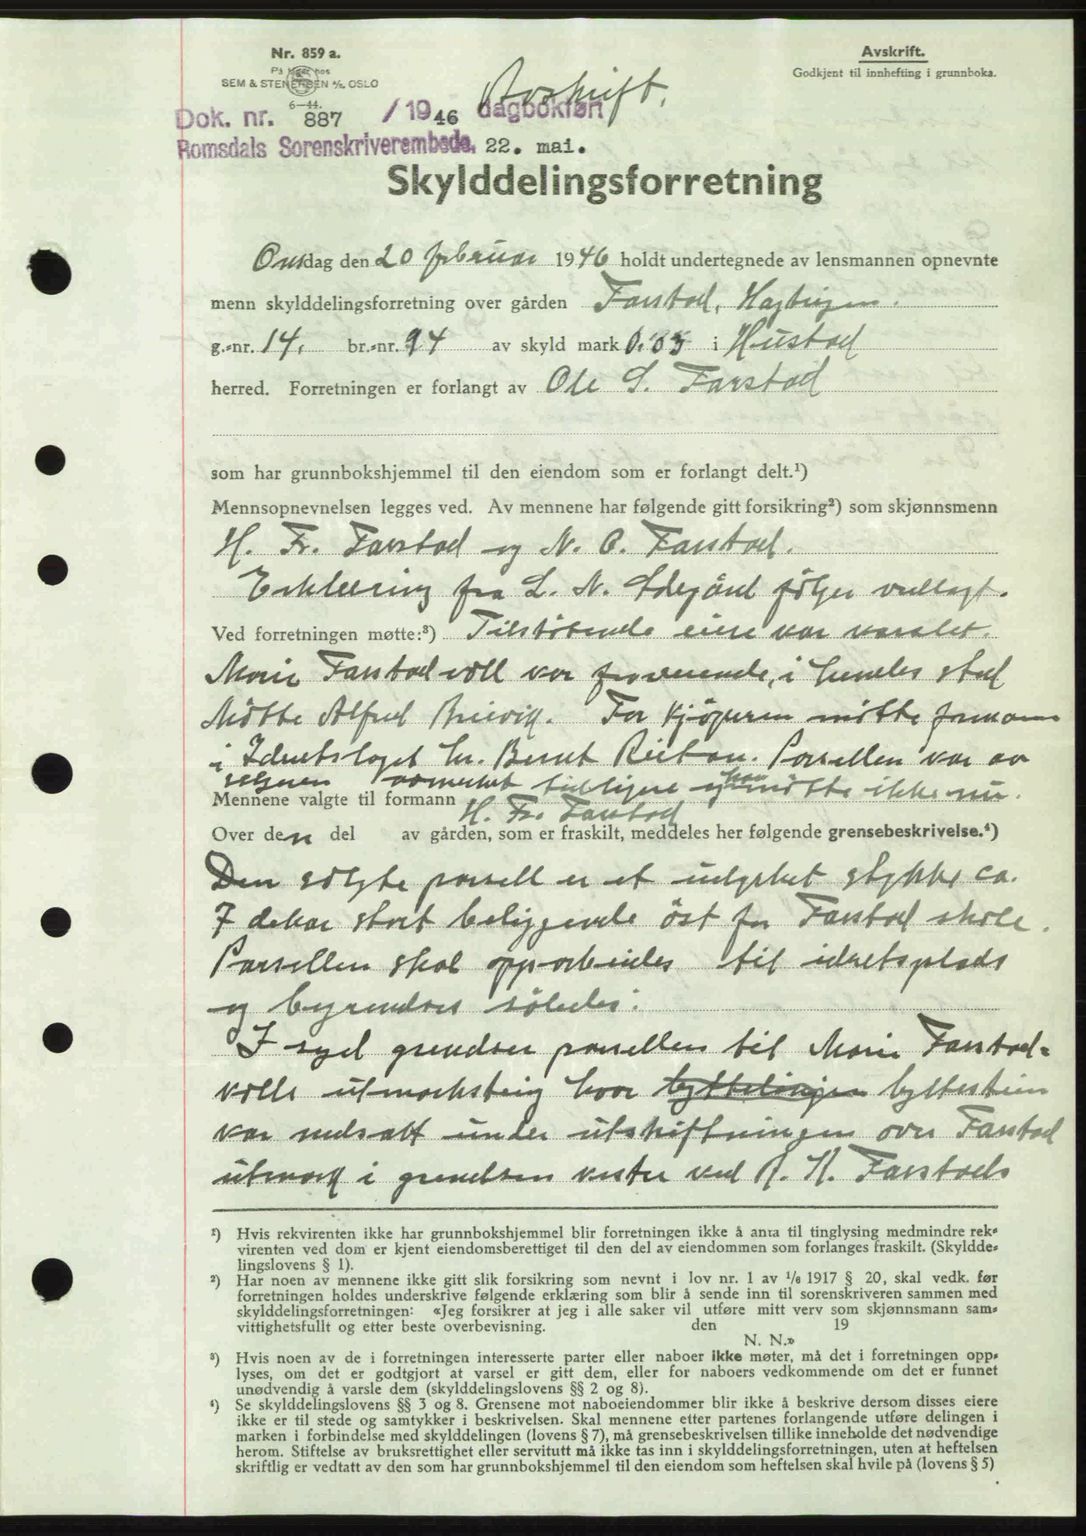 Nr. 859 a.
På lager hos
SEM & STENERSEN A/S. OSLO
6—44.
Avskrift.
Godkjent til innhefting i grunnboka.
Avskrift.
Dok. nr. 887 / 1946 dagbokført
Romsdals Sorenskriverembede, 22. mai.
Skylddelingsforretning
Onsdag den 20 februar 1946 holdt undertegnede av lensmannen opnevnte
menn skylddelingsforretning over gården Farstad,
g.-nr. 14, br.-nr. 94 av skyld mark 0.03 i Hustad
herred. Forretningen er forlangt av Ole S. Farstad
som har grunnbokshjemmel til den eiendom som er forlangt delt.¹)
Mennsopnevnelsen legges ved. Av mennene har følgende gitt forsikring²) som skjønnsmenn
H. Fr. Farstad og N. O. Farstad.
Erklæring fra L. N. Ødegård følger vedlagt.
Ved forretningen møtte:³) Tilstøtende eiere var varslet.
Marie Farstadvoll var fraværende, i hendes sted
møtte Alfred Breivik. For kjøperen møtte formann
i Idretslaget hr. Bernt Reitan. Parsellen var av
selgeren tidligere og han møtte ikke nu.
Mennene valgte til formann H. Fr. Farstad
Over den del av gården, som er fraskilt, meddeles her følgende grensebeskrivelse.⁴)
Den solgte parsell er et udyrket stykke ca.
7 dekar stort beliggende öst for Farstad skole.
Parsellen skal opparbeides til idretsplads
og begrendses således:
I syd grendser parsellen til Marie Farstad-
volls utmarksteig hvor byttelinjen byttestein
var nedsatt under utskiftningen over Farstad
utmark i grendsen vester ved K. H. Farstads
¹) Hvis rekvirenten ikke har grunnbokshjemmel blir forretningen ikke å anta til tinglysing medmindre rek-
virenten ved dom er kjent eiendomsberettiget til den del av eiendommen som forlanges fraskilt. (Skyldde-
lingslovens § 1).
²) Har noen av mennene ikke gitt slik forsikring som nevnt i lov nr. 1 av ¹/₆ 1917 § 20, skal vedk. før
forretningen holdes underskrive følgende erklæring som blir å sende inn til sorenskriveren sammen med
skylddelingsforretningen: «Jeg forsikrer at jeg i alle saker vil utføre mitt verv som skjønnsmann sam-
vittighetsfullt og etter beste overbevisning. den 19
N. N.»
³) Hvis noen av de i forretningen interesserte parter eller naboer ikke møter, må det i forretningen opp-
lyses, om det er godtgjort at varsel er gitt dem, eller for naboers vedkommende om det er funnet
unødvendig å varsle dem (skylddelingslovens §§ 2 og 8).
⁴) Se skylddelingslovens §§ 3 og 8. Grensene mot naboeiendommer blir ikke å beskrive dersom disses eiere
ikke er til stede og samtykker i beskrivelsen. Skal mennene etter partenes forlangende utføre delingen i
marken i forbindelse med skylddelingen (lovens § 7), må grensebeskrivelsen tillike inneholde det nødvendige
herom. Stiftelse av bruksrettighet eller servitutt må ikke tas inn i skylddelingsforretningen, uten at heftelsen
skriftlig er vedtatt av den som har grunnbokshjemmel til den eiendom som heftelsen skal hvile på (lovens § 5)